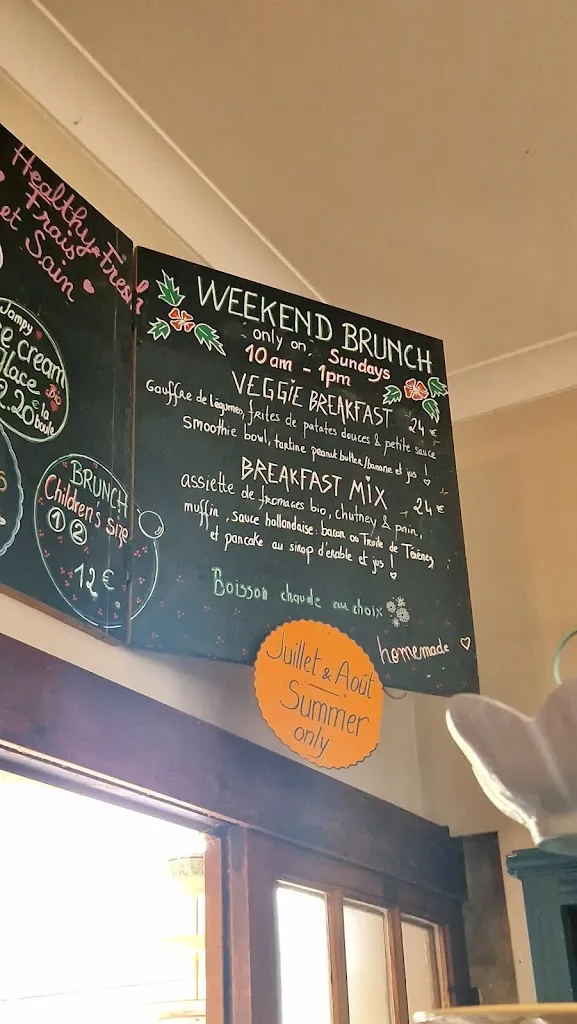 Healthy Fresh
Frais
et Sain
Jampy
ce cream
glace Bio
2.20 la
boule
BRUNCH
Children's size
1 2
12 €
WEEKEND BRUNCH
only on: Sundays
10am - 1pm
VEGGIE BREAKFAST 24 €
Gauffre de légumes, frites de patates douces & petite sauce
Smoothie bowl, tartine peanut butter/banane et jus !
BREAKFAST MIX 24 €
assiette de fromages bio, chutney & pain,
muffin, sauce hollandaise: bacon ou Truite de
et pancake au sirop d'érable et jus !
Boisson chaude au choix
homemade
Juillet & Août
Summer
only